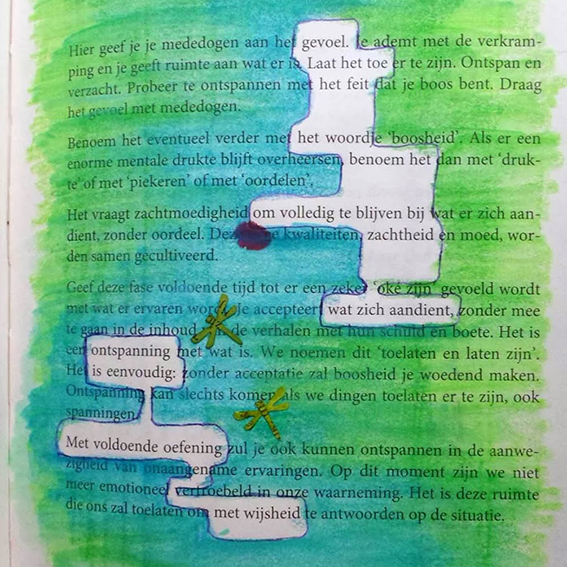 Hier geef je je mededogen aan het gevoel. Je ademt met de verkram-
ping en je geeft ruimte aan wat er is. Laat het toe er te zijn. Ontspan en
verzacht. Probeer te ontspannen met het feit dat je boos bent. Draag
het gevoel met mededogen.
Benoem het eventueel verder met het woordje ‘boosheid’. Als er een
enorme mentale drukte blijft overheersen, benoem het dan met ‘druk-
te’ of met ‘piekeren’ of met ‘oordelen’,
Het vraagt zachtmoedigheid om volledig te blijven bij wat er zich aan-
dient, zonder oordeel. Deze kwaliteiten, zachtheid en moed, wor-
den samen gecultiveerd.
Geef deze fase voldoende tijd tot er een zeker ‘oké zijn’ gevoeld wordt
met wat er ervaren wordt. Je accepteert wat zich aandient, zonder mee
te gaan in de inhoud de verhalen met hun schuld en boete. Het is
een ontspanning met wat is. We noemen dit ‘toelaten en laten zijn’.
Het is eenvoudig: zonder acceptatie zal boosheid je woedend maken.
Ontspanning kan slechts komen als we dingen toelaten er te zijn, ook
spanningen.
Met voldoende oefening zul je ook kunnen ontspannen in de aanwe-
zigheid van onaangename ervaringen. Op dit moment zijn we niet
meer emotioneel vertroebeld in onze waarneming. Het is deze ruimte
die ons zal toelaten om met wijsheid te antwoorden op de situatie.